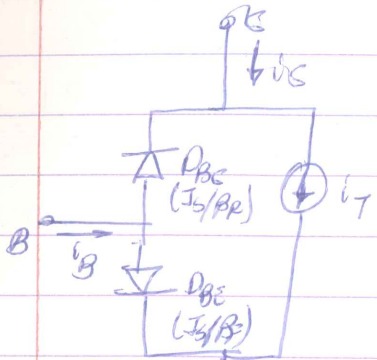 C
i_C
D_BC
(I_S/β_R)
i_T
B
i_B
D_BE
(I_S/β_F)